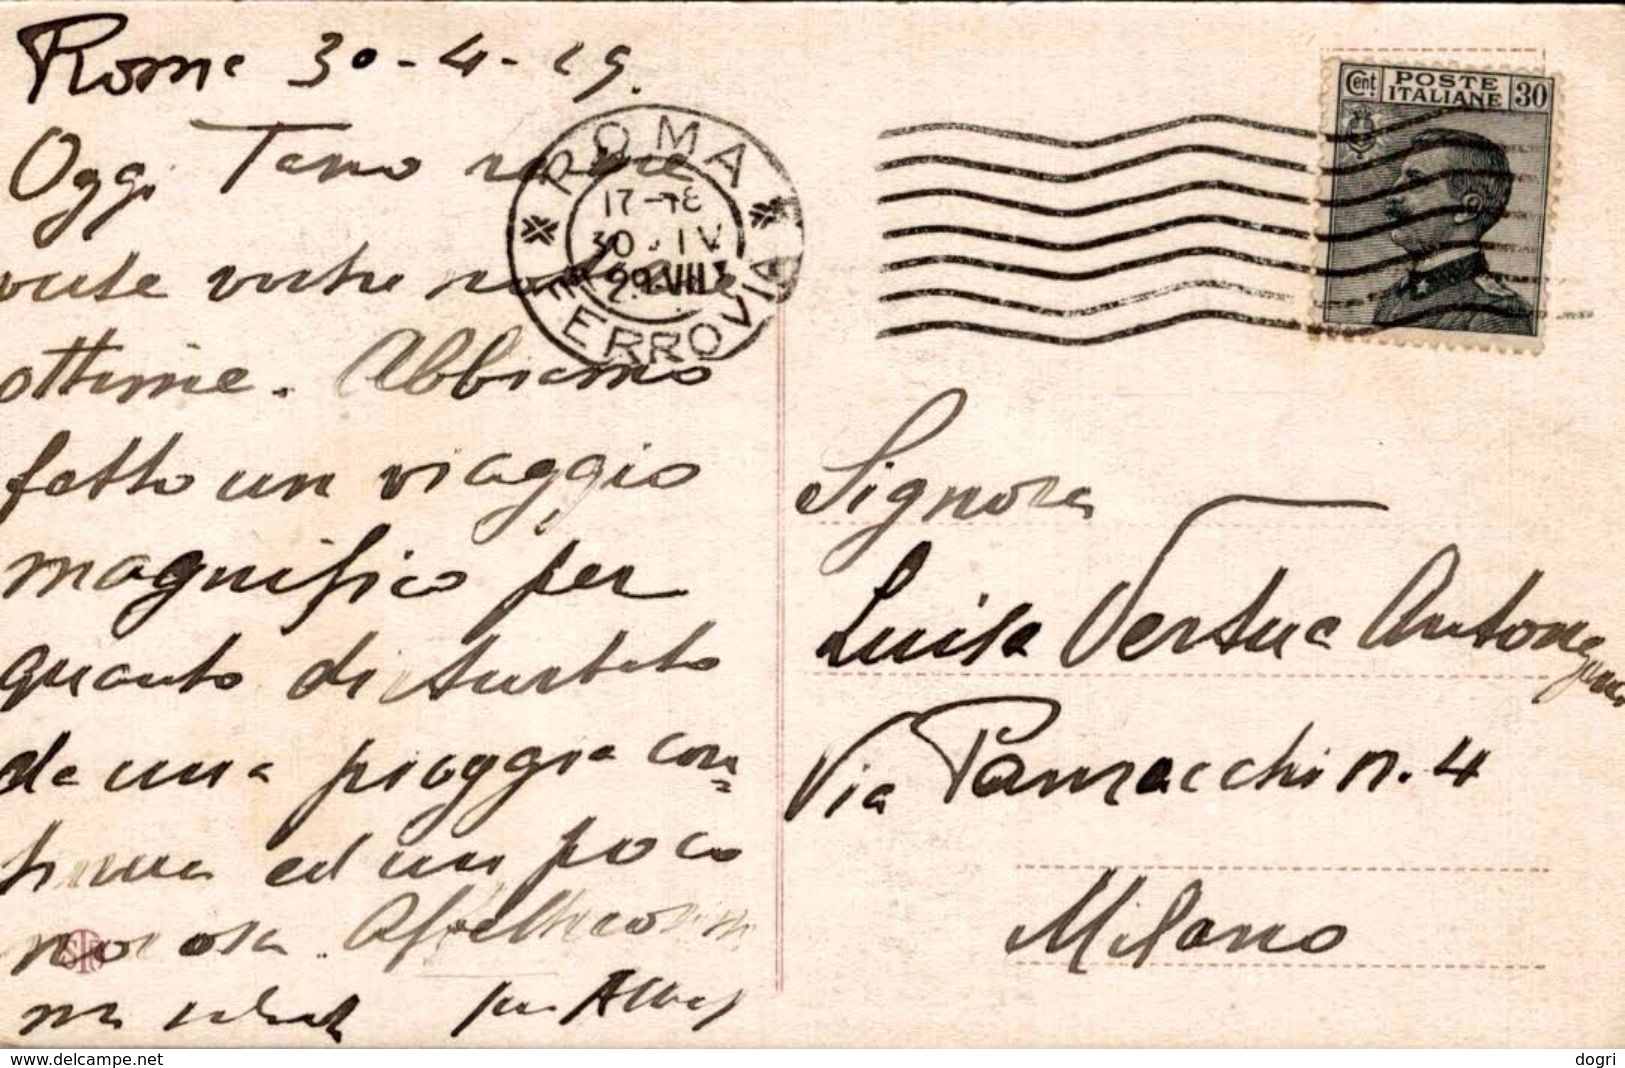 Roma 30-4-29.
Oggi
vostre
ottime. Abbiamo
fatto un viaggio
magnifico per
quanto disturbato
da una pioggia con=
tinua ed un poco
noiosa. Affettuosissi
mi saluti
ROMA
17-18
30.IV
29.VIII
FERROVIA
Cent. POSTE ITALIANE 30
Signora
Luisa Vertua Antongini
Via n. 4
Milano
dogri
www.delcampe.net